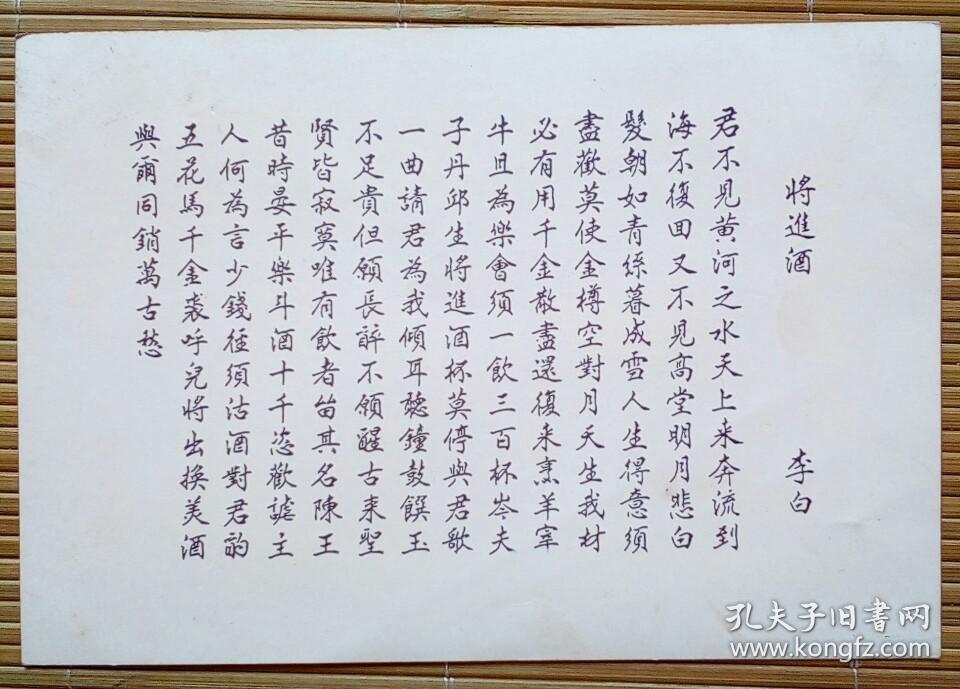 將進酒 李白
君不見黃河之水天上来奔流到
海不復回又不見高堂明月悲白
髮朝如青絲暮成雪人生得意須
盡歡莫使金樽空對月天生我材
必有用千金散盡還復来烹羊宰
牛且為樂會須一飲三百杯岑夫
子丹邱生將進酒杯莫停與君歌
一曲請君為我傾耳聽鐘鼓饌玉
不足貴但願長醉不願醒古来聖
賢皆寂寞唯有飲者留其名陳王
昔時宴平樂斗酒十千恣歡謔主
人何為言少錢徑須沽酒對君酌
五花馬千金裘呼兒將出換美酒
與爾同銷萬古愁
孔夫子旧书网
www.kongfz.com